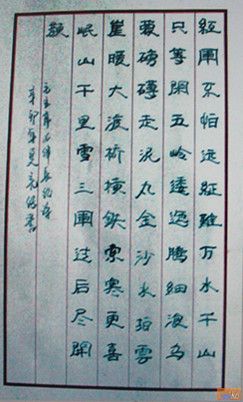 紅軍不怕远征難万水千山
只等閑五岭逶迤腾细浪乌
蒙磅礴走泥丸金沙水拍雲
崖暖大渡桥横鉄索寒更喜
岷山千里雪三軍过后尽開
颜
毛主席七律長征
辛卯年